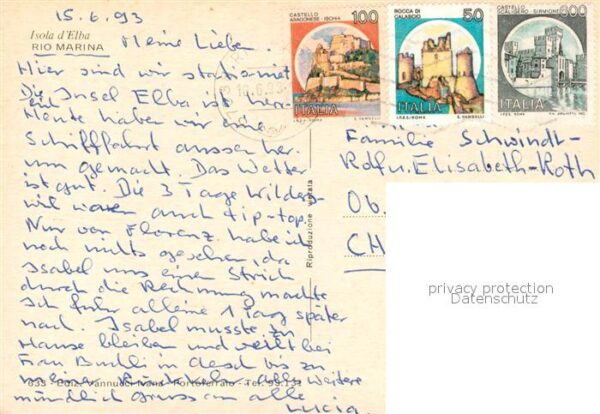 15.6.93
Isola d'Elba
RIO MARINA
Meine Lieben.
Hier sind wir stationiert
Die Insel Elba ist herr-
Heute haben wir eine
Schifffahrt aussen her-
um gemacht. Das Wetter
ist gut. Die 3 Tage
waren auch tip-top.
Nur von Florenz habe ich
noch nichts gesehen, da
Isabel uns einen Strich
durch die Rechnung machte
Ich fuhr alleine 1 Tag später
nach. Isabel musste zu
Hause bleiben und weilt bei
Frau in bis zu
Alles Weitere
mündlich Gruss an alle
Lucia
633 - Ediz. Vannucci Ivana - Portoferraio - Tel. 93.131
Riproduzione vietata
CASTELLO
ARAGONESE - ISCHIA
100
ITALIA
I.P.S.-ROMA E. VANGELLI
ROCCA DI
CALASCIO
50
ITALIA
I.P.Z.S.-ROMA E. VANGELLI
CASTELLO
SCALIGERO - SIRMIONE
600
ITALIA
I.P.Z.S. ROMA
Familie Schwindt-
Rdfn. Elisabeth-Roth
Ob.
CH
privacy protection
Datenschutz